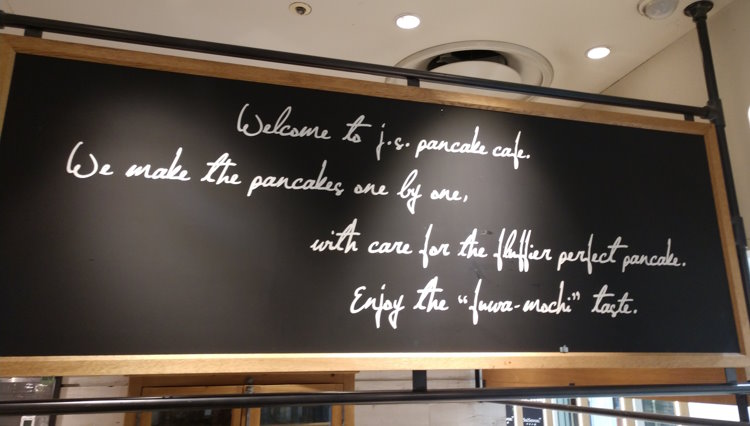 Welcome to j.s. pancake cafe.
We make the pancakes one by one,
with care for the fluffier perfect pancake.
Enjoy the “fuwa-mochi” taste.